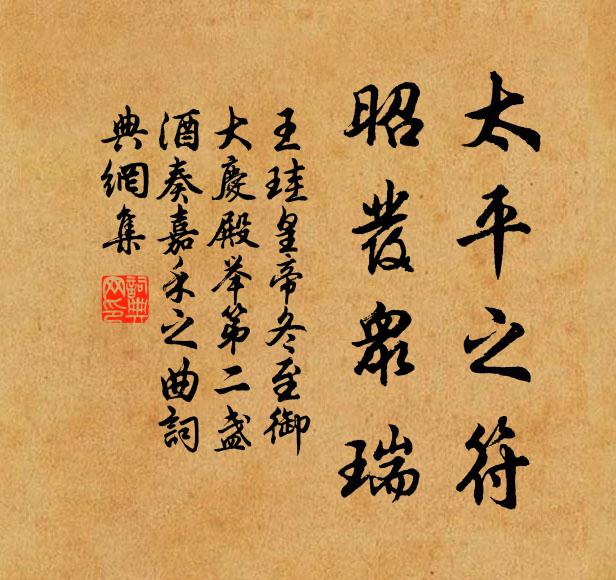 太平之符
昭發衆瑞
王珪皇帝冬至御
大慶殿举第二盏
酒奏嘉禾之曲詞
典網集
詞典
网印